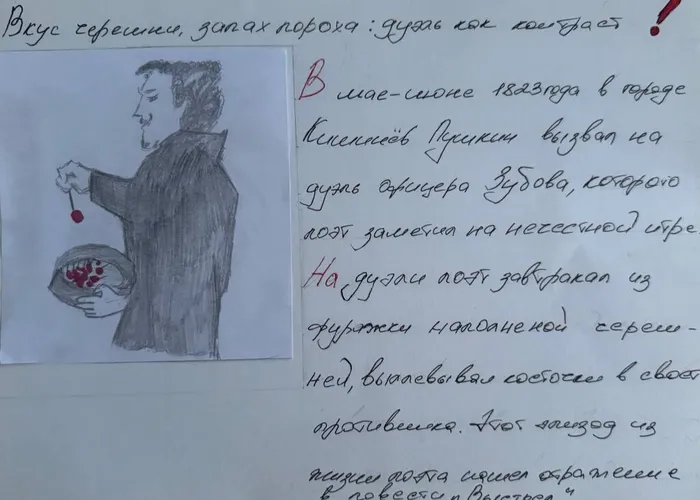 Вкус черешни, запах пороха: дуэль как контраст !
В мае-июне 1823 года в городе
Кишинёв Пушкин вызвал на
дуэль офицера Зубова, которого
поэт заметил на нечестной игре.
На дуэли поэт завтракал из
фуражки наполненой череш-
ней, выплевывал косточки в своего
противника. Этот эпизод из
жизни поэта нашел отражение
в повести "Выстрел"